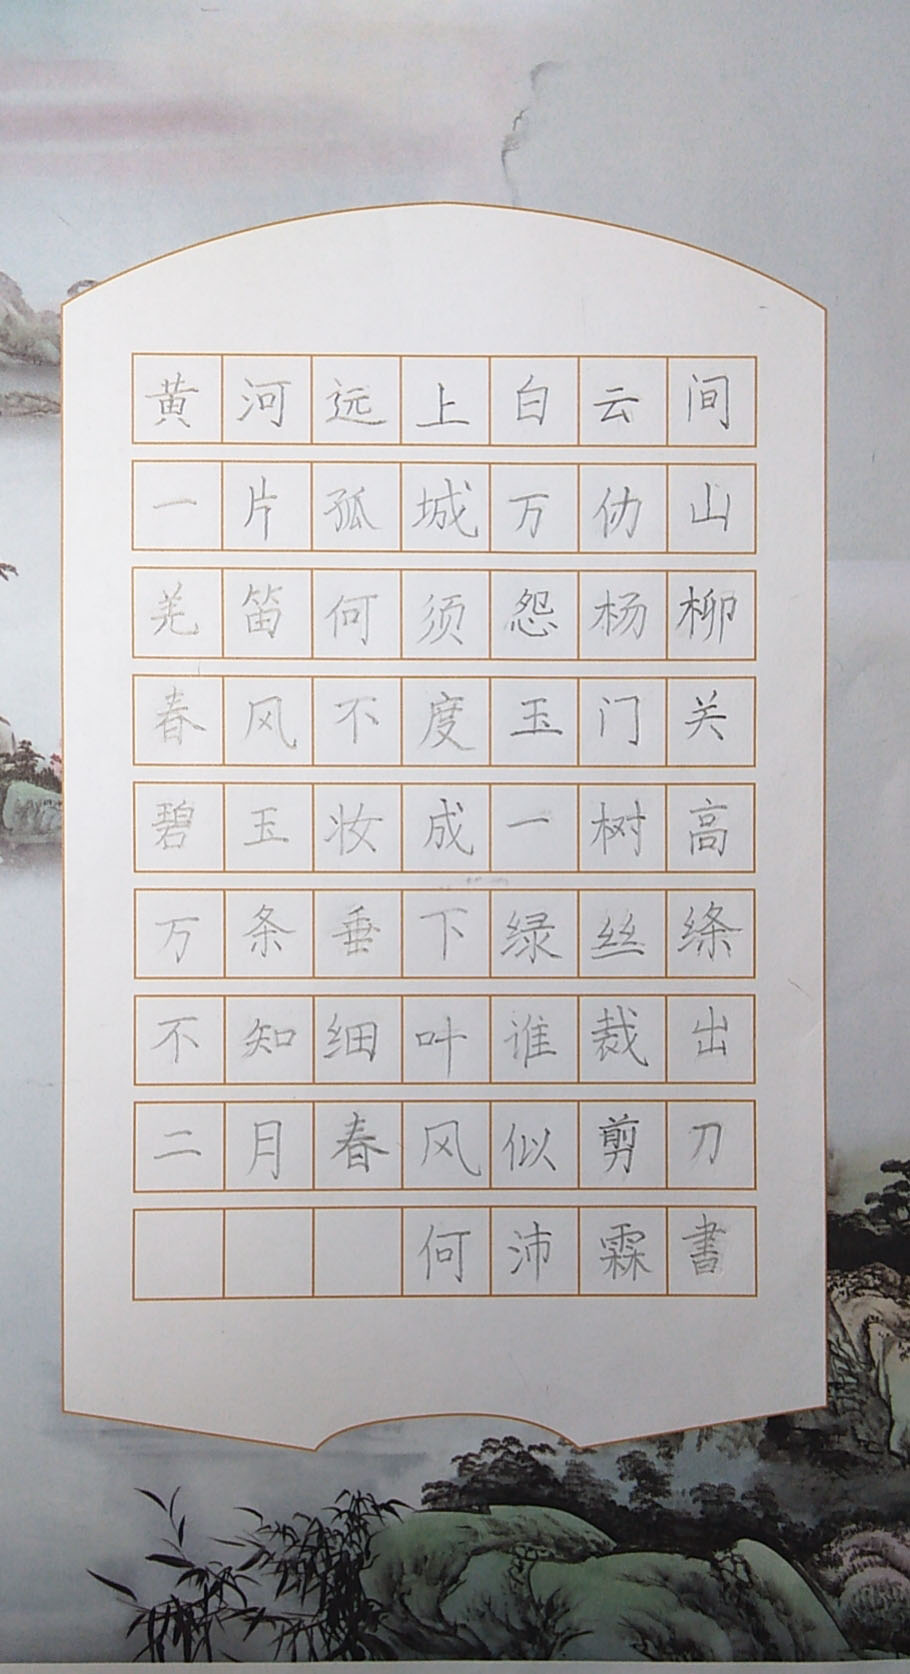 黄河远上白云间
一片孤城万仞山
羌笛何须怨杨柳
春风不度玉门关
碧玉妆成一树高
万条垂下绿丝绦
不知细叶谁裁出
二月春风似剪刀
何沛霖書